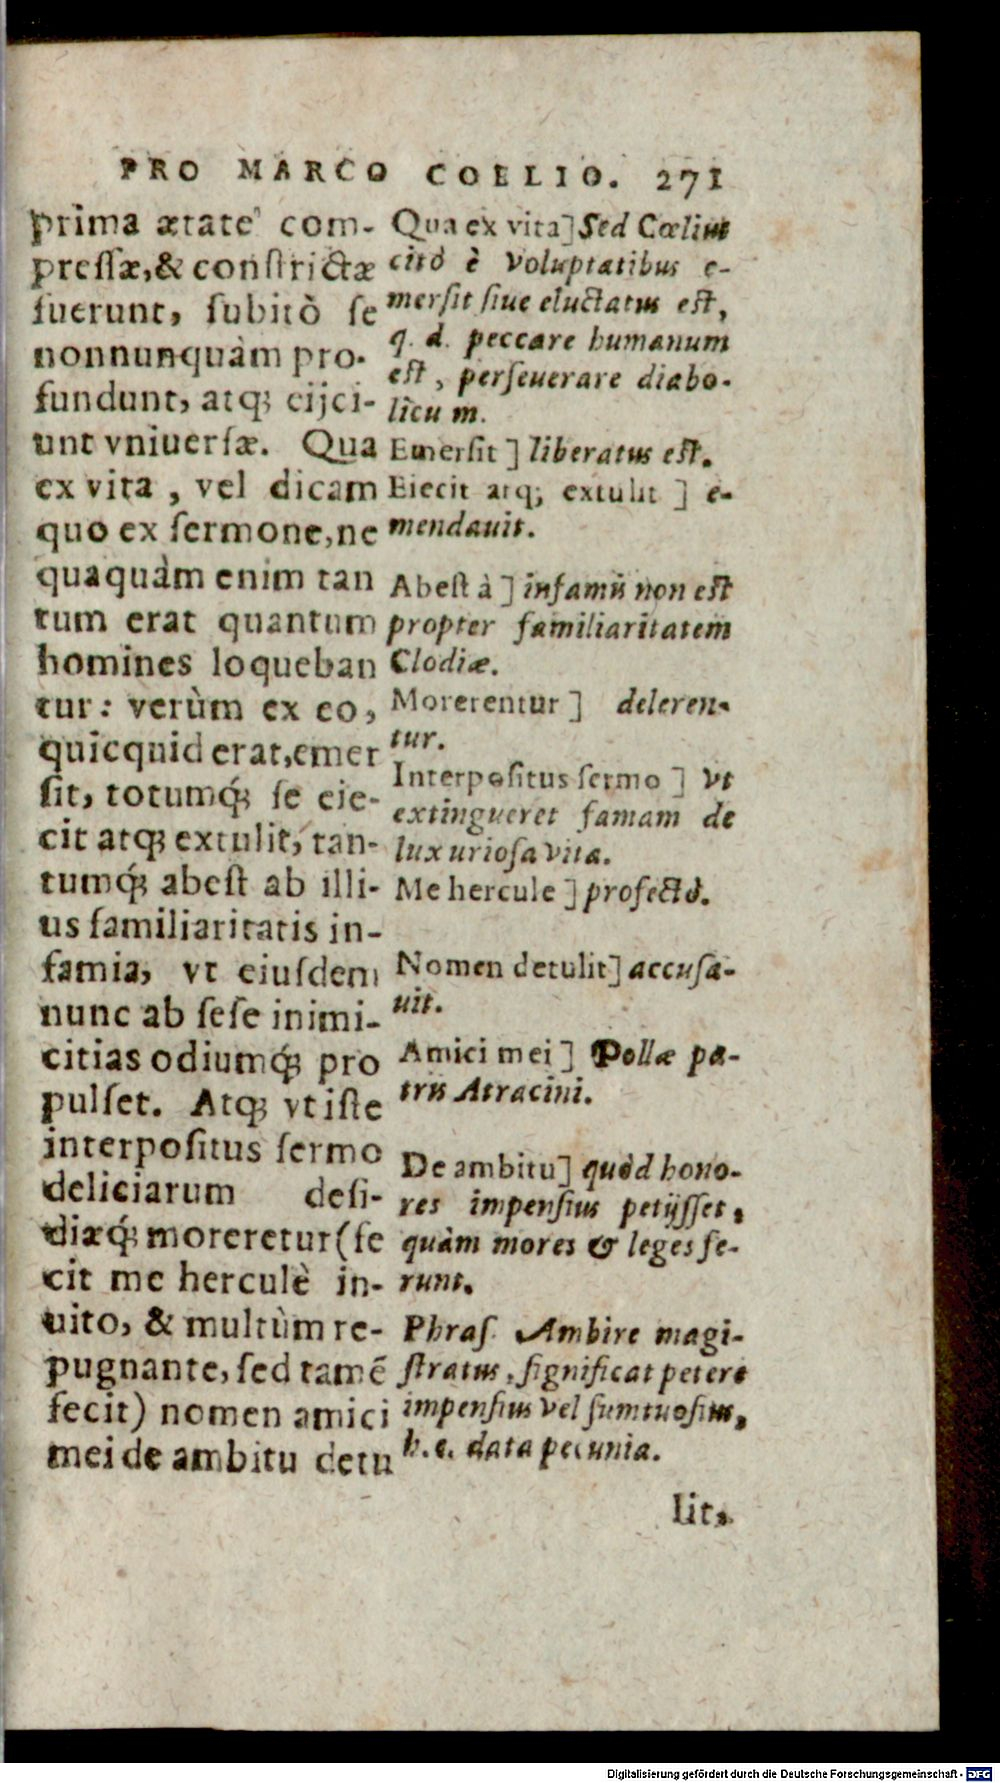 PRO MARCO COELIO. 271
prima ætate com-
pressæ, & constrictæ
fuerunt, subitò se
nonnunquàm pro-
fundunt, atq; eijci-
unt vniuersæ. Qua
ex vita, vel dicam
quo ex sermone, ne
quaquàm enim tan
tum erat quantum
homines loqueban
tur: verùm ex eo,
quicquid erat, emer
sit, totumq́; se eie-
cit atq; extulit, tan-
tumq́; abest ab illi-
us familiaritatis in-
famia, vt eiusdem
nunc ab sese inimi-
citias odiumq́; pro
pulset. Atq; vt iste
interpositus sermo
deliciarum desi-
diæq́; moreretur (fe
cit me herculè in-
uito, & multùm re-
pugnante, sed tamē
fecit) nomen amici
mei de ambitu detu
Qua ex vita] Sed Cœlius
citò è voluptatibus e-
mersit siue eluctatus est,
q. d. peccare humanum
est, perseuerare diabo-
licum.
Emersit] liberatus est.
Eiecit atq; extulit] e-
mendauit.
Abest à] infamiı non est
propter familiaritatem
Clodiæ.
Morerentur] deleren-
tur.
Interpositus sermo] vt
extingueret famam de
luxuriosa vita.
Me hercule] profectò.
Nomen detulit] accusa-
uit.
Amici mei] Pollæ pa-
tris Atracini.
De ambitu] quòd hono-
res impensius petijsset,
quàm mores & leges fe-
runt.
Phras. Ambire magi-
stratus, significat petere
impensius vel sumtuosius,
h. e. data pecunia.
lit,
Digitalisierung gefördert durch die Deutsche Forschungsgemeinschaft - DFG